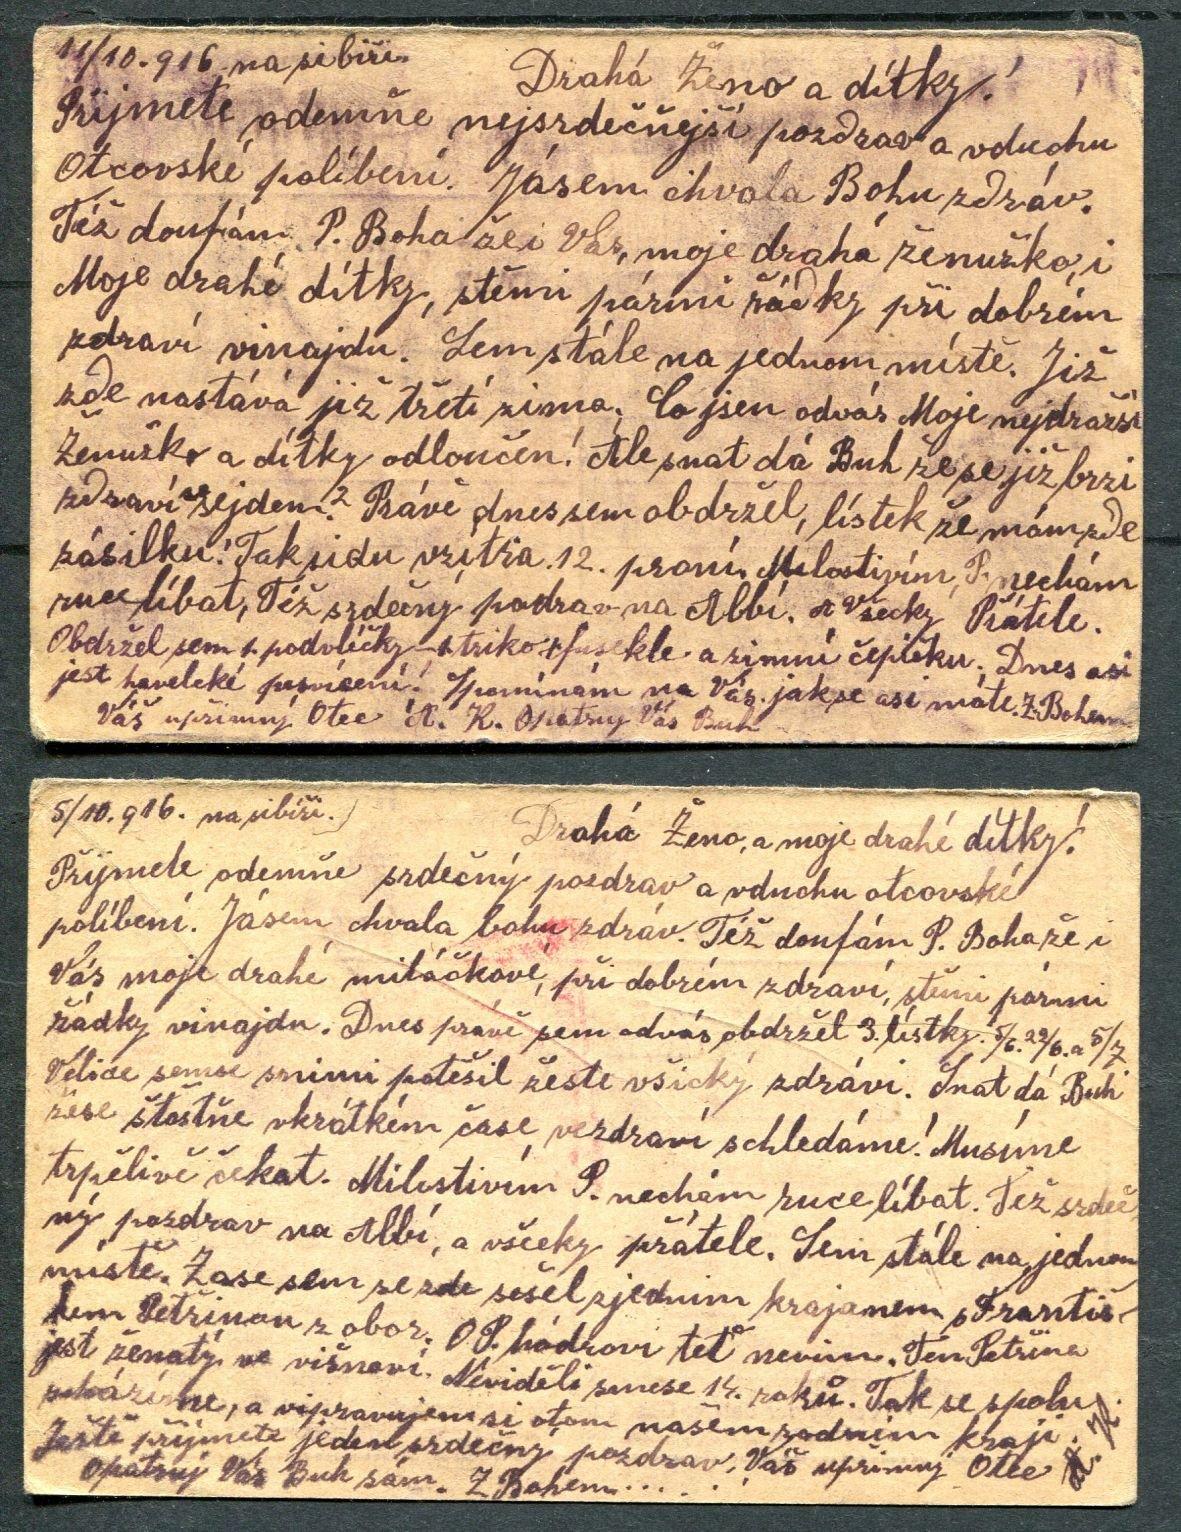 11/10. 916 na sibiři.
Drahá Ženo a dítky!
Přijmete odemňe nejsrdečňejší pozdrav a vduchu
Otcovské políbení. Jásem chvala Bohu zdráv.
Též doufám P. Boha že i Vás, moje drahá ženuško, i
Moje drahé dítky, stěmi pármi řádky při dobrém
zdraví vinajdu. Sem stále na jednom místě. Již
zde nastává již třetí zima. Co jsen odvás Moje nejdražší
Ženušk a dítky odloučen! Ale snat dá Buh že se již brzi
zdraví sejdem? Právě dnes sem obdržel, lístek že mám zde
zásilku! Tak jidu vzítra. 12. proní. Milostivím P. nechám
ruce líbat, Též srdečný podrav na Albí. a Všecky Přátele.
Obdržel sem 1 podvlíčky 1 triko 1 fusekle a zimní čepičku. Dnes asi
jest havelcké posvícení! Zpomínám na Vás. jakse asi máte. Z. Bohem
Váš upřimný Otec A. K. Opatruj Vás Buh
5/10. 916. na sibiři.
Drahá Ženo, a moje drahé dítky!
Přijmete odemňe srdečný pozdrav a vduchu otcovské
políbení. Jásem chvala bohu zdráv. Též doufám P. Boha že i
Vás moje drahé miláčkové, při dobrém zdraví, stěmi pármi
řádky vinajdu. Dnes právě sem odvás obdržel 3. lístky. 5/6. 22/6. a 5/7
Velice semse snimi potěšil žeste všicky zdrávi. Snat dá Buh
žese štastňe vkrátkém čase vezdraví schledáme! Musíme
trpělivě čekat. Milostivím P. nechám ruce líbat. Též srdeč
ný pozdrav na Albí, a všceky přátele. Sem stále na jednom
místě. Zase sem se zde sešel zjedním krajanem s Františ-
kem Petřinou z obor. O P. hádrovi teť nevim. Ten Petřina
jest ženatý ve višňoví. Neviděli smese 14. roků. Tak se spolu
scházíme, a vipravujem si otom našem rodnim kraji.
Ješte přijmete jeden srdečný pozdrav. Váš upřimný Otec A. K.
Opatruj Vás Buh sám. Z Bohem.....